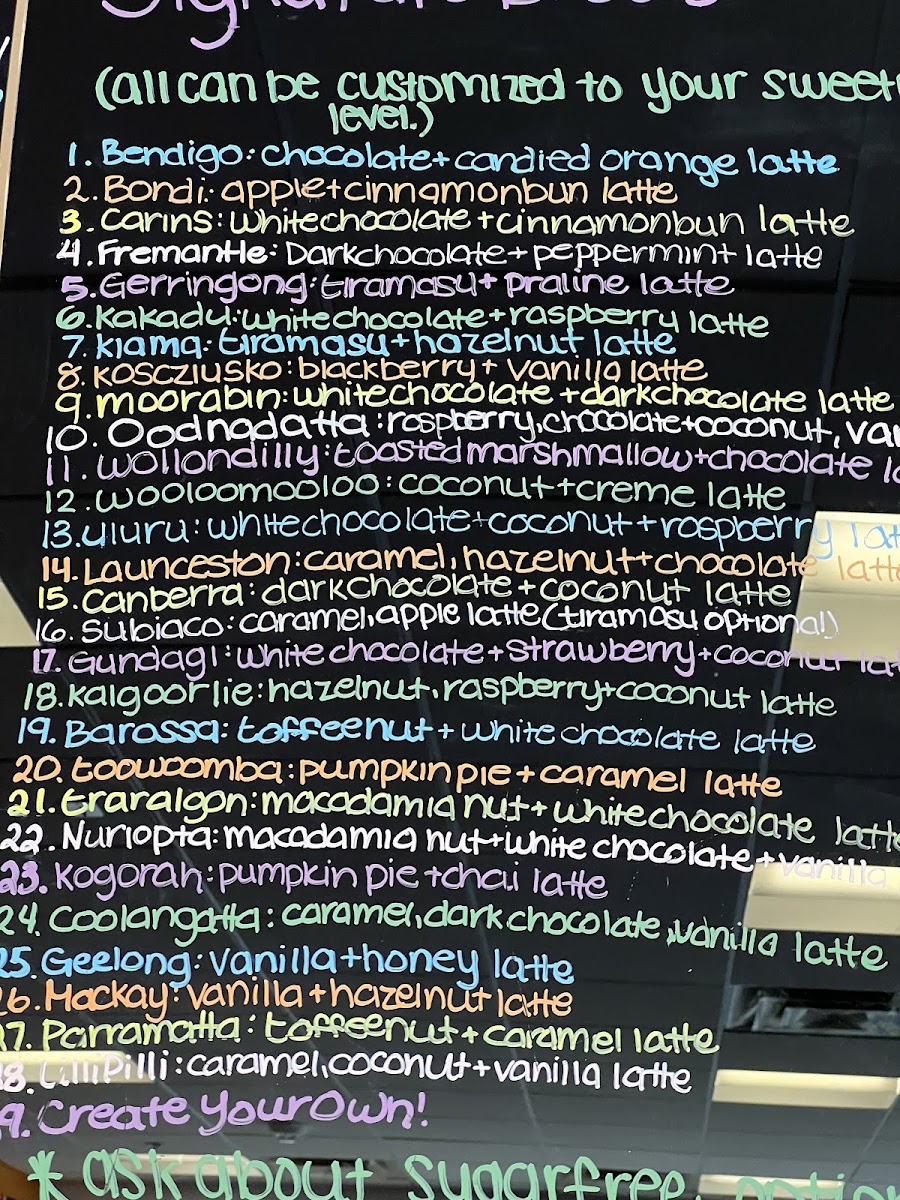 (all can be customized to your
level.)
1. Bendigo: chocolate + candied orange latte
2. Bondi: apple + cinnamonbun latte
3. Carins: whitechocolate + cinnamonbun latte
4. Fremantle: Darkchocolate + peppermint latte
5. Gerringong: tiramasu + praline latte
6. Kakadu: whitechocolate + raspberry latte
7. Kiama: tiramasu + hazelnut latte
8. Koscziusko: blackberry + vanilla latte
9. moorabin: whitechocolate + darkchocolate latte
10. Oodnadatta: raspberry, chocolate + coconut,
11. Wollondilly: toasted marshmallow + chocolate
12. Wooloomooloo: coconut + creme latte
13. Uluru: whitechocolate + coconut + raspberry
14. Launceston: caramel, hazelnut + chocolate latte
15. Canberra: darkchocolate + coconut latte
16. Subiaco: caramel, apple latte (tiramasu optional)
17. Gundagi: white chocolate + strawberry + coconut
18. Kalgoorlie: hazelnut, raspberry + coconut latte
19. Barossa: toffeenut + white chocolate latte
20. toowoomba: pumpkin pie + caramel latte
21. traralgon: macadamia nut + whitechocolate latte
22. Nuriopta: macadamia nut + white chocolate + vanilla
23. Kogorah: pumpkin pie + chai latte
24. Coolangatta: caramel, dark chocolate, vanilla latte
25. Geelong: vanilla + honey latte
26. Mackay: vanilla + hazelnut latte
27. Parramatta: toffeenut + caramel latte
8. LilliPilli: caramel, coconut + vanilla latte
9. Create Your Own!
* ask about sugarfree